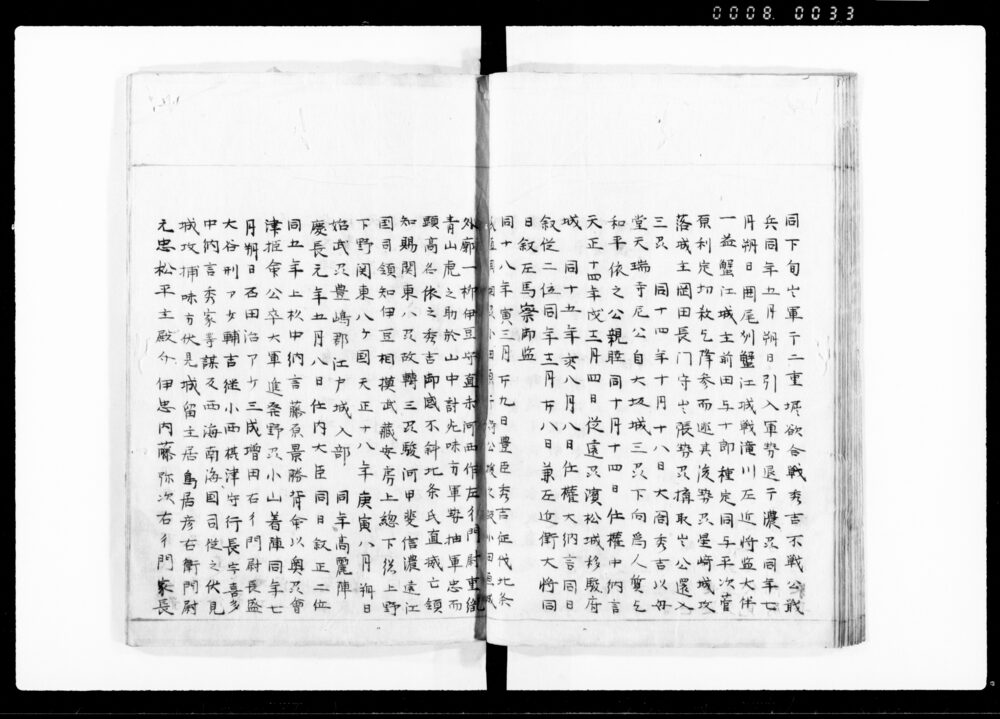 0008 0033
同下旬出軍于二重堀欲合戦秀吉不戦公戦
兵同年五月朔日引入軍勢退于濃刕同年七
月朔日囲尾州蟹江城戦滝川左近将監大伴
一益蟹江城主前田与十郎種定同与平次菅
原利定切敵乞降参而逃其後勢刕星崎城攻
落城主岡田長門守出張勢刕横取出公還入
三刕 同十四年十月十八日大閤秀吉以母
堂天瑞寺尼公自大坂城三刕下向為人質乞
和平依之公親睦同十月十四日任権中納言
天正十四年戊三月四日従遠刕濱松城移駿府
城 同十五年亥八月八日任権大納言同日
叙従二位同年十二月廿八日兼左近衛大将同
日叙左馬寮御監
同十八年寅三月廿九日豊臣秀吉征伐北条
外廓一柳伊豆守直末河西作左衛門尉重
青山虎之助於山中討死味方軍勢抽軍忠而
顕高名依之秀吉御感不斜北条氏直滅亡領
知賜関東八刕改轉三刕駿河甲斐信濃遠江
国司領知伊豆相摸武蔵安房上総下総上野
下野関東八ヶ国天正十八年庚寅八月朔日
始武刕豊嶋郡江戸城入部 同年高麗陣
慶長元年五月八日任内大臣同日叙正二位
同五年上杦中納言藤原景勝背命以奥刕會
津拒命公卒大軍進発野刕小山着陣同年七
月朔日石田治部少三成増田右衛門尉長盛
大谷刑部少輔吉継小西摂津守行長宇喜多
中納言秀家等謀及西海南海国司従之伏見
城攻捕味方伏見城留主居鳥居彦右衛門尉
元忠松平主殿介伊忠内藤弥次右衛門家長